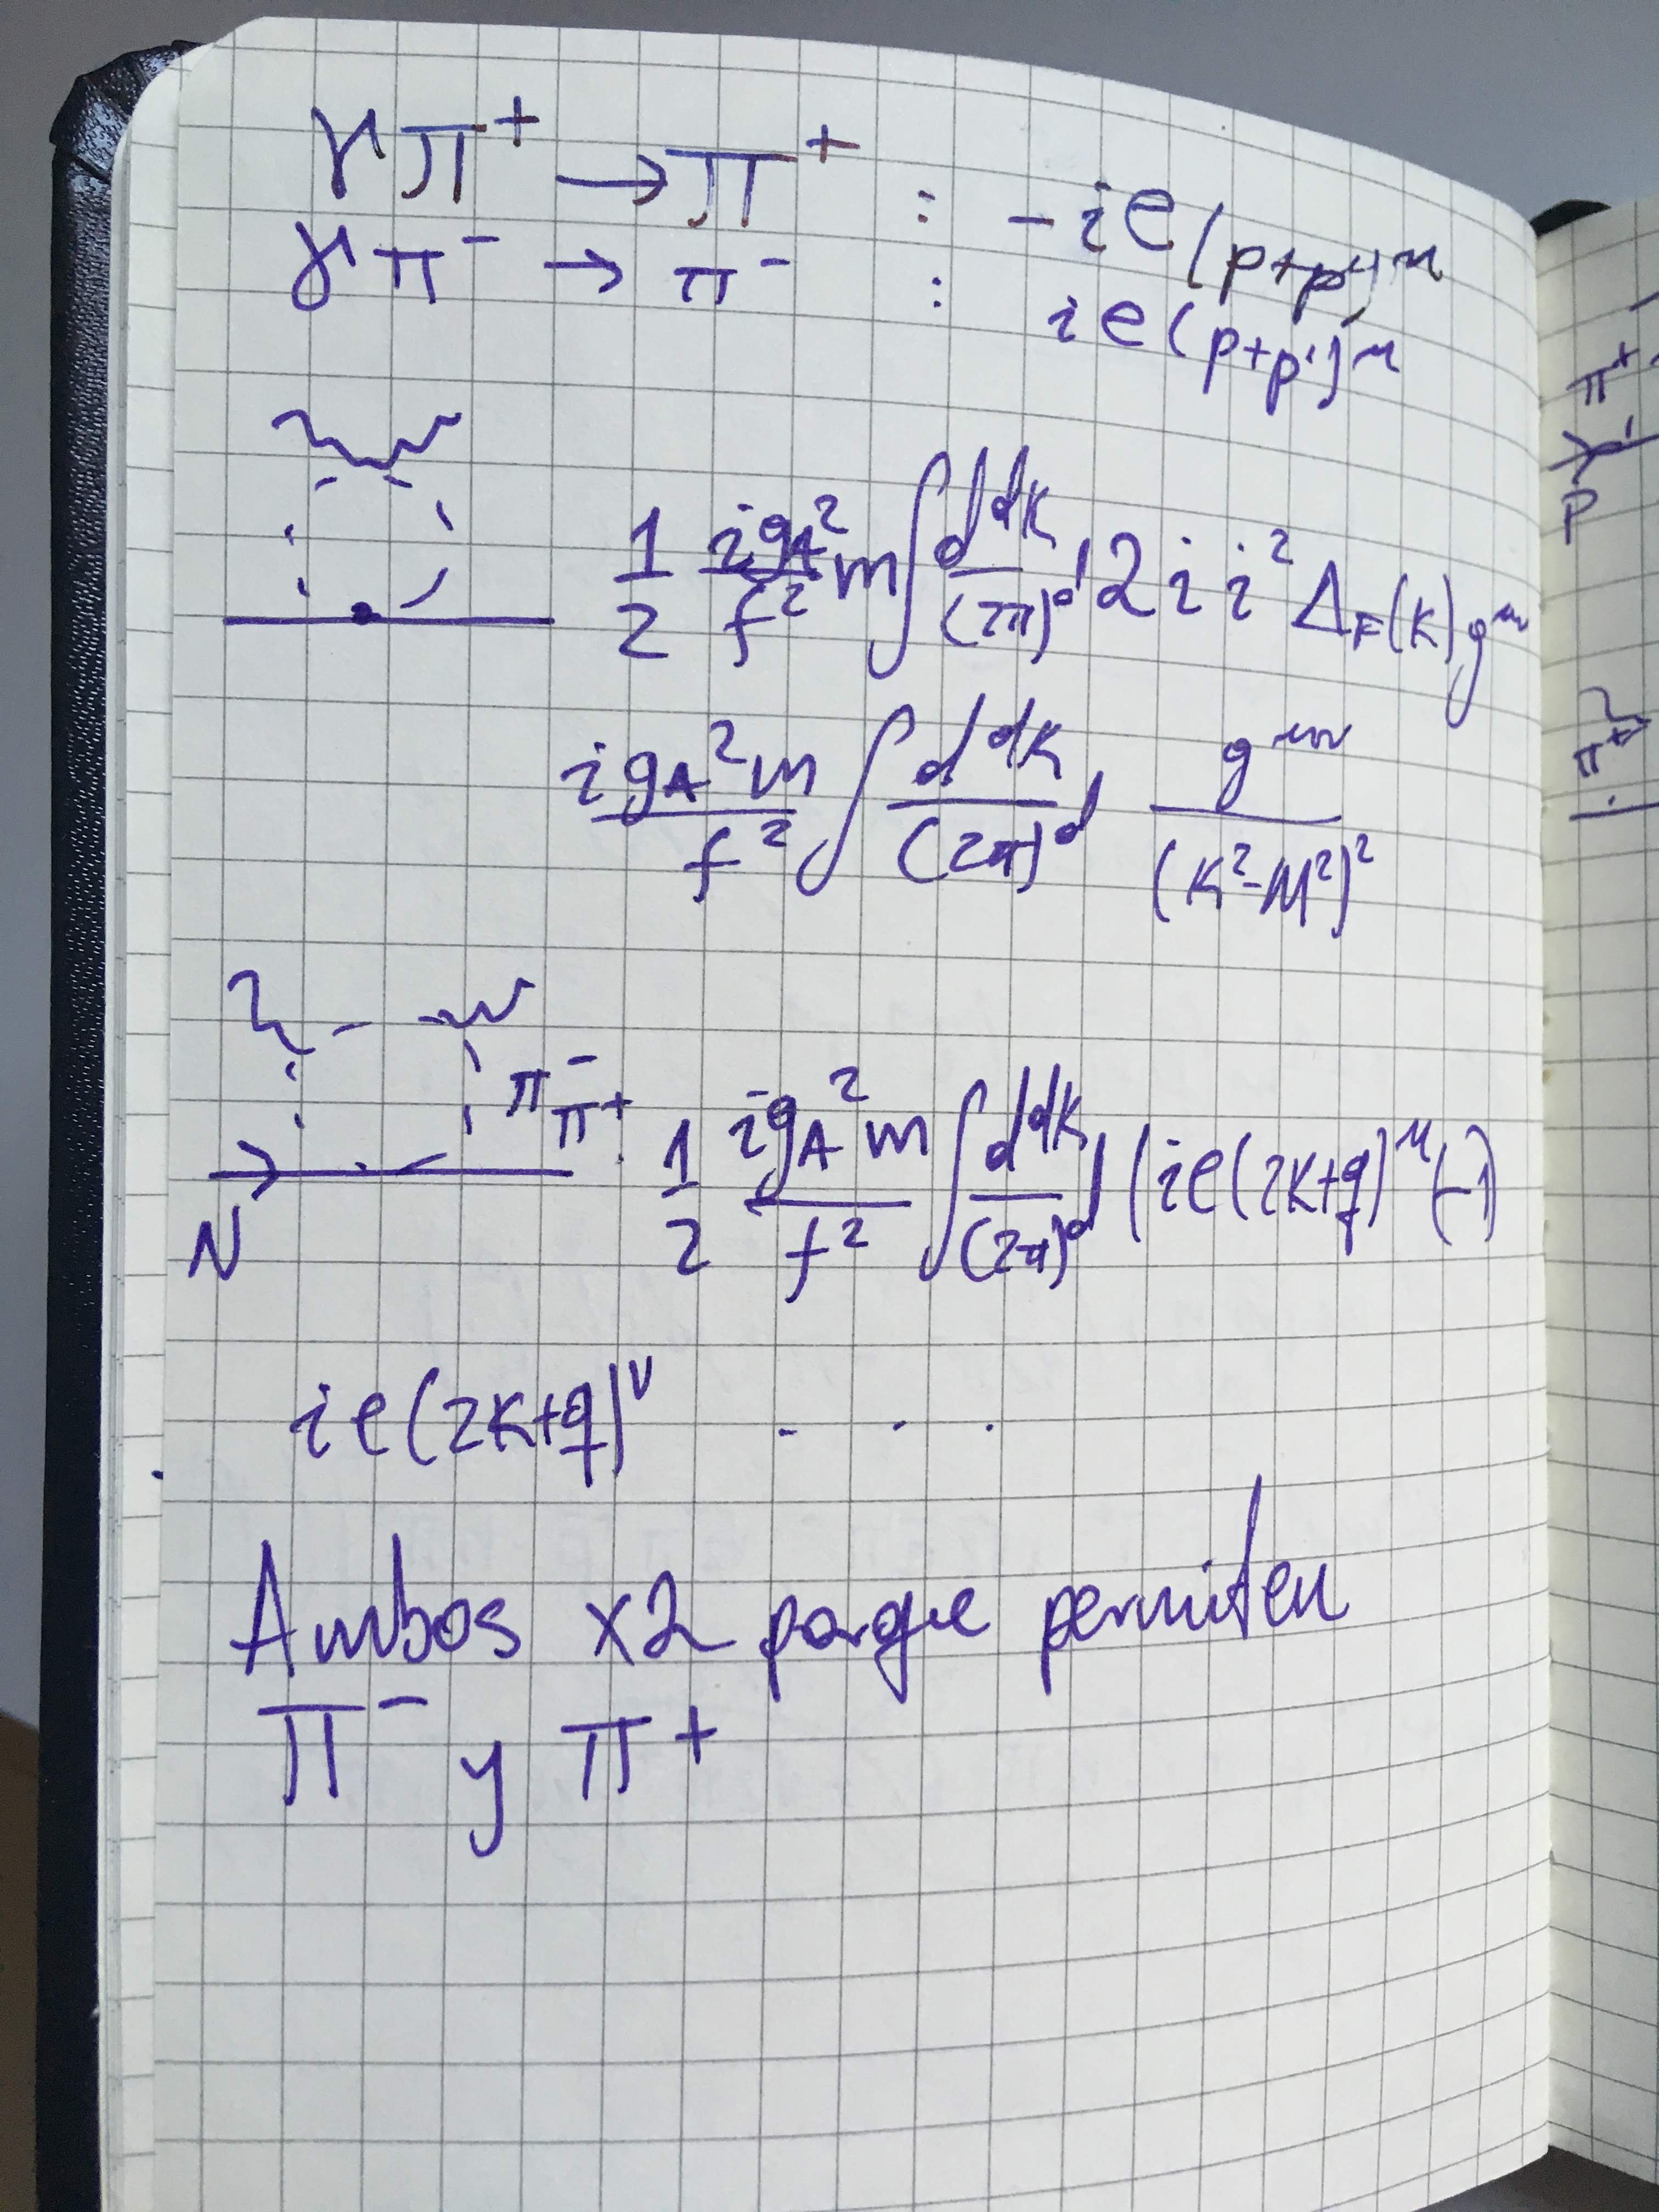 γπ⁺ → π⁺ : -ie(p+p')^μ
γπ⁻ → π⁻ : ie(p+p')^μ
1/2 ig_A²/f² m ∫ d^dk/(2π)^d 2 i i² Δ_F(k) g^μν
ig_A² m/f² ∫ d^dk/(2π)^d g^μν/(k²-M²)²
π⁻
π⁺
1/2 ig_A² m/f² ∫ d^dk/(2π)^d (ie(2k+q)^μ (-1)
N
ie(2k+q)^ν . . .
Ambos x2 porque permiten
π⁻ y π⁺
π⁺
p'
p
π⁺